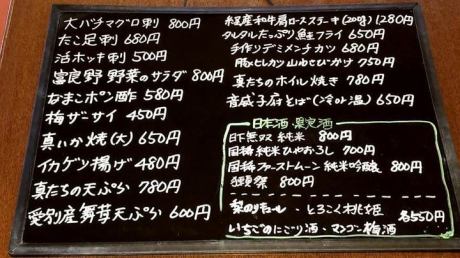 大バチマグロ刺 800円
たこ足刺 680円
活ホッキ刺 500円
富良野野菜のサラダ 800円
なまこポン酢 580円
梅ザーサイ 450円
真いか焼(大) 650円
イカゲソ揚げ 480円
真たちの天ぷら 780円
愛別産舞茸天ぷら 600円
経産和牛肩ロースステーキ(200g) 1280円
タルタルたっぷり鮭フライ 650円
手作りデミメンチカツ 680円
豚ヒレカツ山わさびかけ 750円
真たちのホイル焼き 780円
音威子府そば(冷or温) 650円
日本酒・果実酒
純米 800円
国稀 純米ひやおろし 700円
国稀ファーストムーン 純米吟醸 800円
800円
梨のリキュール・とろこく桃姫 各550円
いちごのにごり酒・マンゴー梅酒